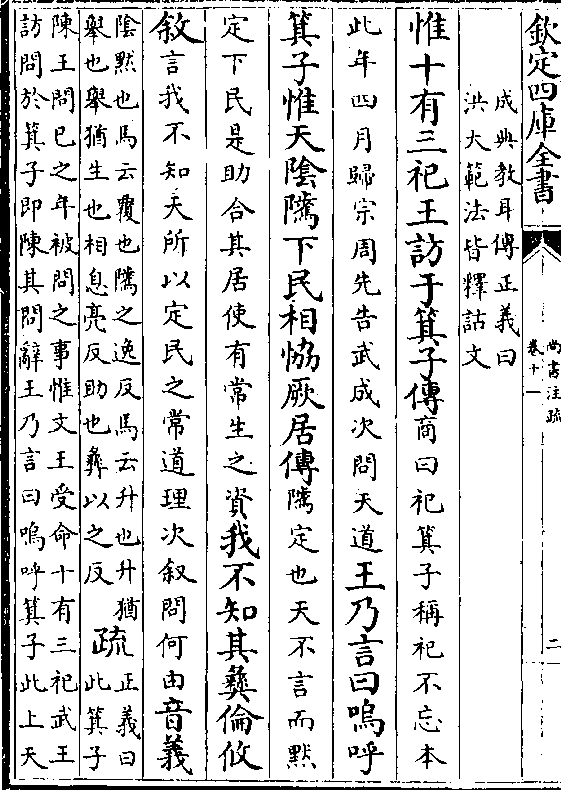 欽定四庫全書
尚書注疏
卷十一
二
成典教耳傳正義曰
洪大範法皆釋詁文
惟十有三祀王訪于箕子傳商曰祀箕子稱祀不忘本
此年四月歸宗周先告武成次問天道王乃言曰嗚呼
箕子惟天陰隲下民相協厥居傳隲定也天不言而默
定下民是助合其居使有常生之資我不知其彝倫攸
敘言我不知天所以定民之常道理次叙問何由音義
陰默也馬云覆也隲之逸反馬云升也升猶
舉也舉猶生也相息亮反助也彝以之反
疏
正義曰
此箕子
陳王問己之年被問之事惟文王受命十有三祀武王
訪問於箕子即陳其問辭王乃言曰嗚呼箕子此上天